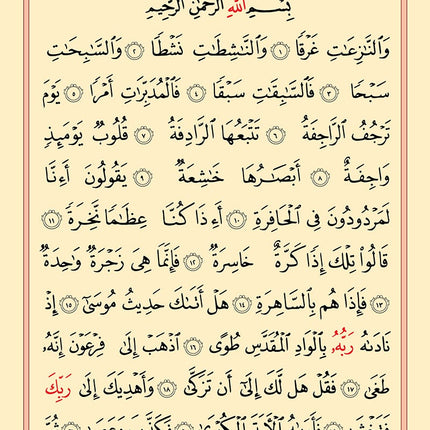 بِسْمِ ٱللَّهِ ٱلرَّحْمَٰنِ ٱلرَّحِيمِ
وَٱلنَّٰزِعَٰتِ غَرْقًا ١ وَٱلنَّٰشِطَٰتِ نَشْطًا ٢ وَٱلسَّٰبِحَٰتِ
سَبْحًا ٣ فَٱلسَّٰبِقَٰتِ سَبْقًا ٤ فَٱلْمُدَبِّرَٰتِ أَمْرًا ٥ يَوْمَ
تَرْجُفُ ٱلرَّاجِفَةُ ٦ تَتْبَعُهَا ٱلرَّادِفَةُ ٧ قُلُوبٌ يَوْمَئِذٍ
وَاجِفَةٌ ٨ أَبْصَٰرُهَا خَٰشِعَةٌ ٩ يَقُولُونَ أَءِنَّا
لَمَرْدُودُونَ فِى ٱلْحَافِرَةِ ١٠ أَءِذَا كُنَّا عِظَٰمًا نَّخِرَةً ١١
قَالُوا۟ تِلْكَ إِذًا كَرَّةٌ خَاسِرَةٌ ١٢ فَإِنَّمَا هِىَ زَجْرَةٌ وَٰحِدَةٌ
١٣ فَإِذَا هُم بِٱلسَّاهِرَةِ ١٤ هَلْ أَتَىٰكَ حَدِيثُ مُوسَىٰٓ ١٥ إِذْ
نَادَىٰهُ رَبُّهُۥ بِٱلْوَادِ ٱلْمُقَدَّسِ طُوًى ١٦ ٱذْهَبْ إِلَىٰ فِرْعَوْنَ إِنَّهُۥ
طَغَىٰ ١٧ فَقُلْ هَل لَّكَ إِلَىٰٓ أَن تَزَكَّىٰ ١٨ وَأَهْدِيَكَ إِلَىٰ رَبِّكَ